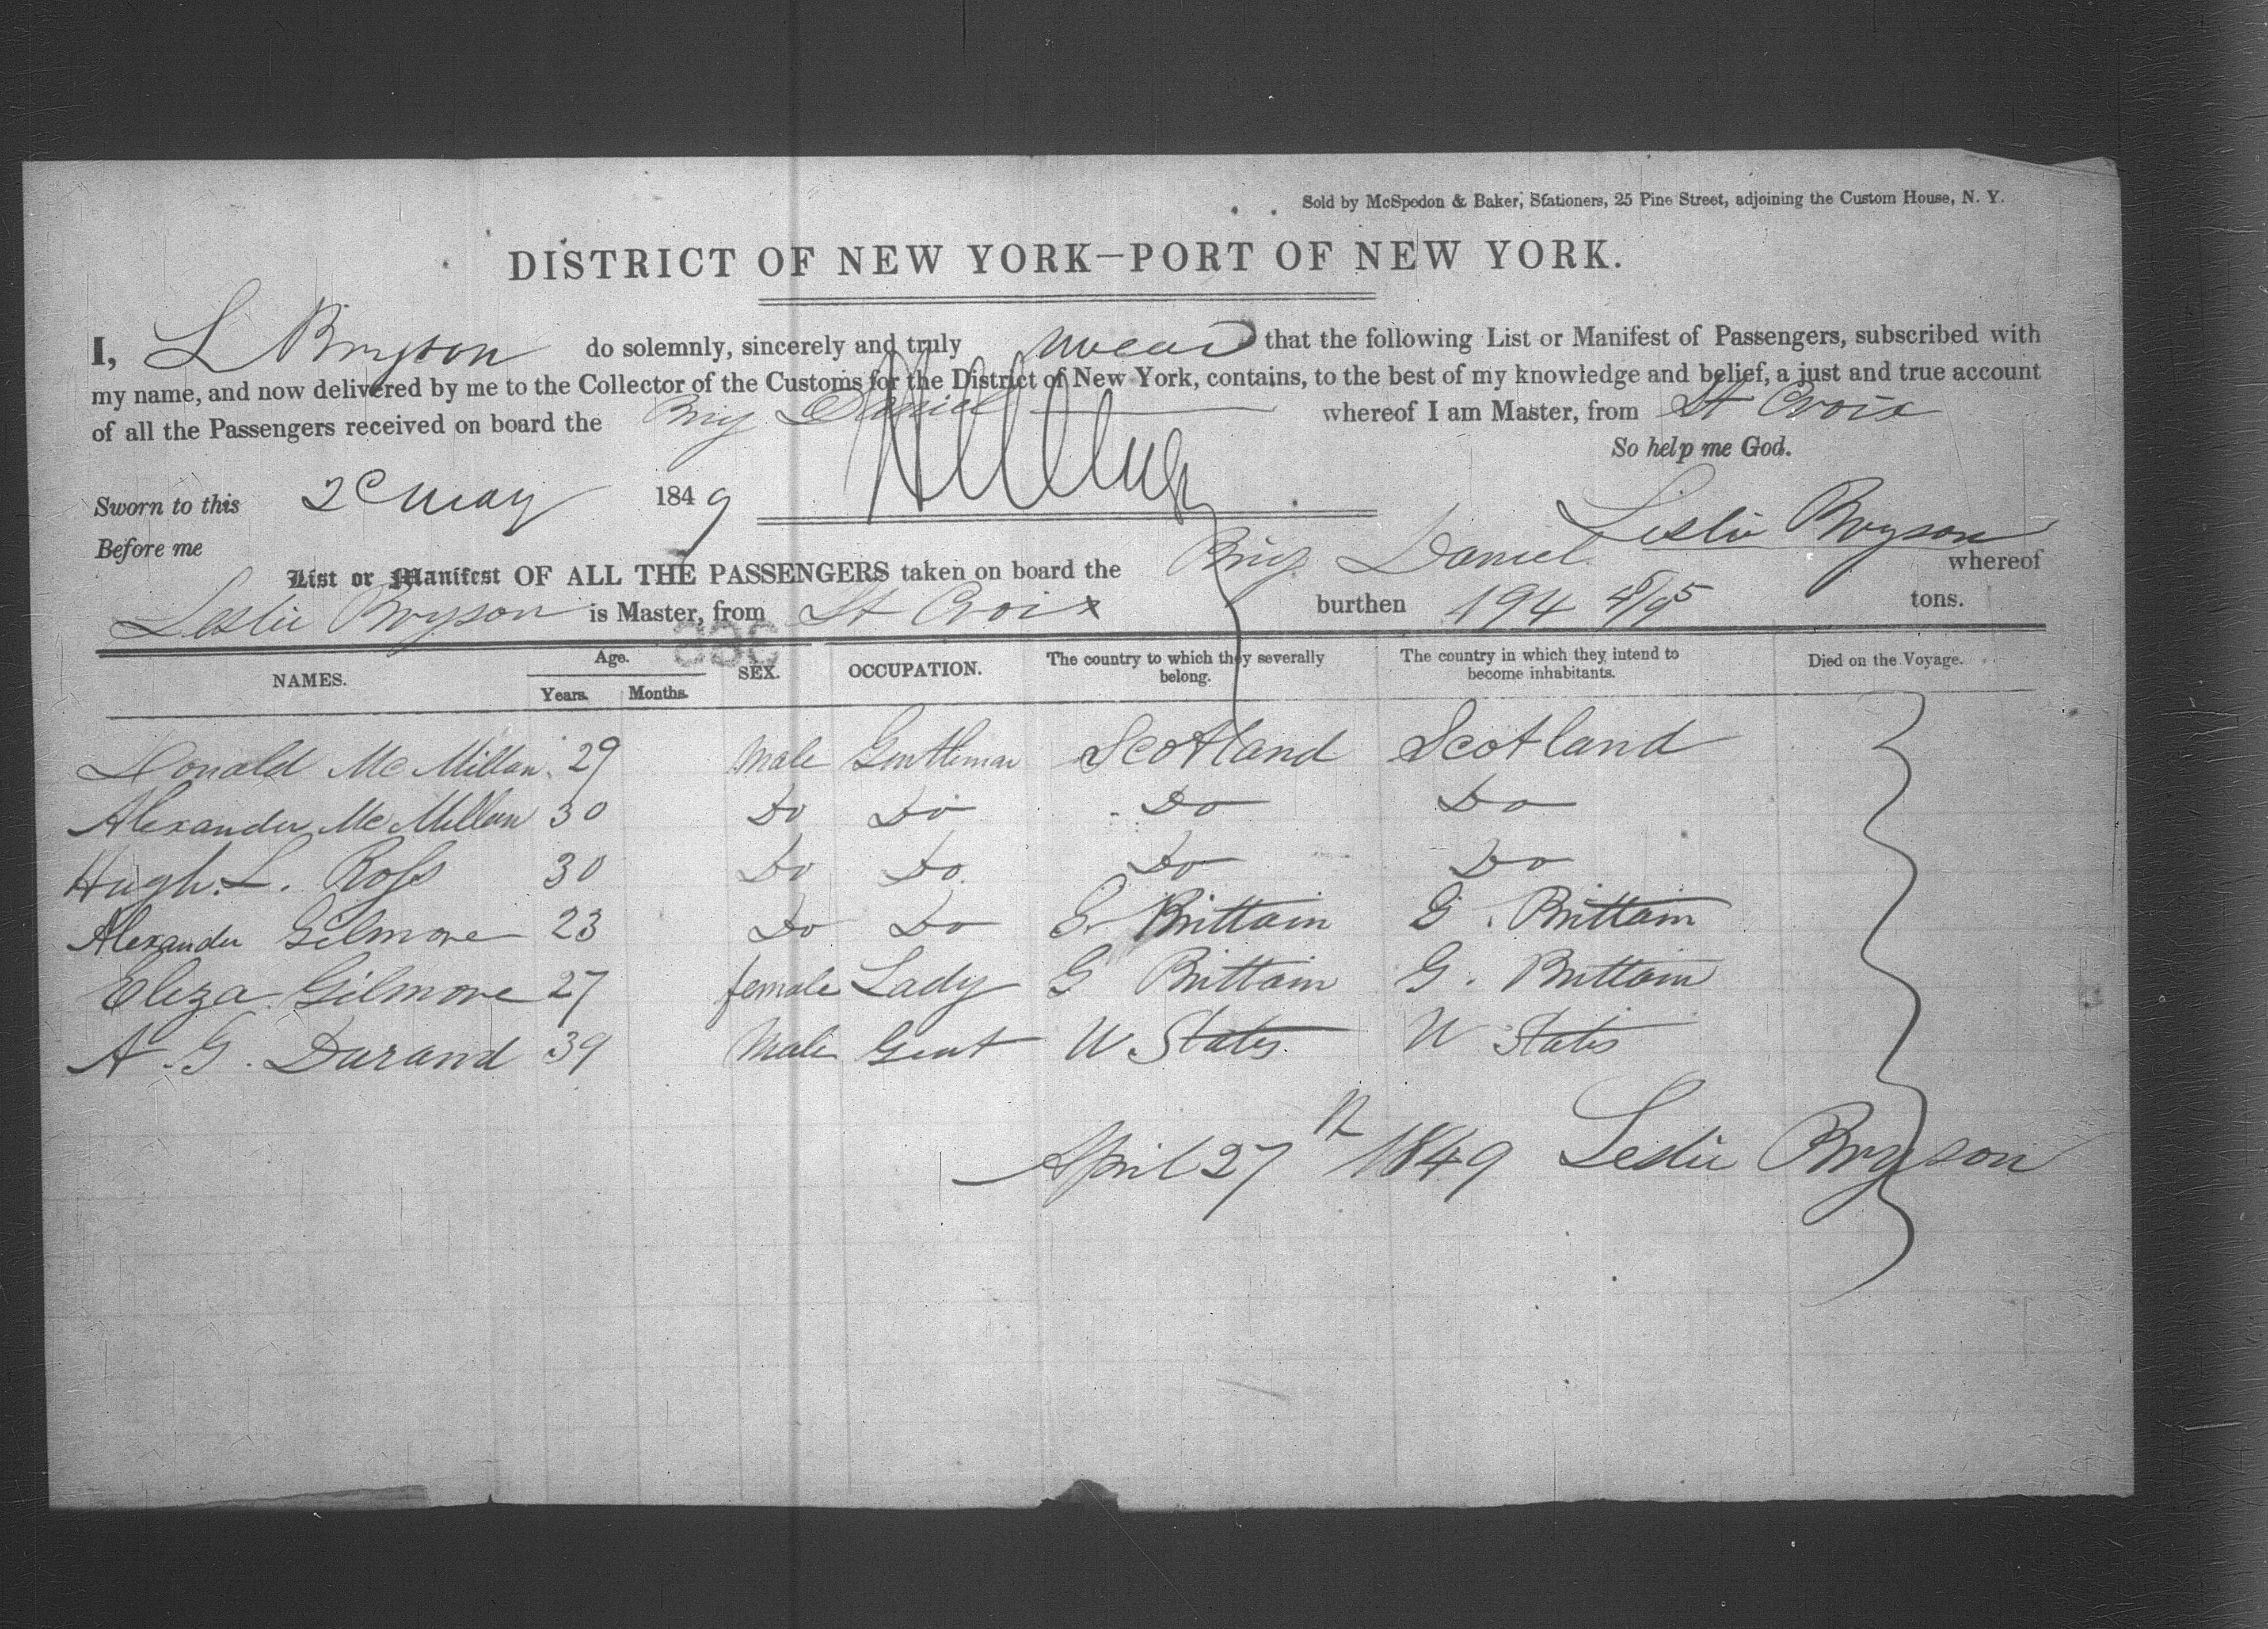 Sold by McSpedon & Baker, Stationers, 25 Pine Street, adjoining the Custom House, N. Y.
DISTRICT OF NEW YORK—PORT OF NEW YORK.
I, L Bryson do solemnly, sincerely and truly swear that the following List or Manifest of Passengers, subscribed with
my name, and now delivered by me to the Collector of the Customs for the District of New York, contains, to the best of my knowledge and belief, a just and true account
of all the Passengers received on board the Brig Daniel whereof I am Master, from St Croix
So help me God.
Sworn to this 2 May 1849
Leslie Bryson
Before me
List or Manifest OF ALL THE PASSENGERS taken on board the Brig Daniel whereof
Leslie Bryson is Master, from St Croix burthen 194 tons.
NAMES. Age. Years. Months. SEX. OCCUPATION. The country to which they severally belong. The country in which they intend to become inhabitants. Died on the Voyage.
Donald McMillan. 29 Male Gentleman Scotland Scotland
Alexander McMillan 30 Do Do Do Do
Hugh. L. Ross 30 Do Do. Do Do
Alexander Gilmore 23 Do Do G. Brittain G. Brittain
Eliza Gilmore 27 female Lady G Brittain G. Brittain
A. G. Durand 39 Male Gent U States. U States
April 27th 1849 Leslie Bryson